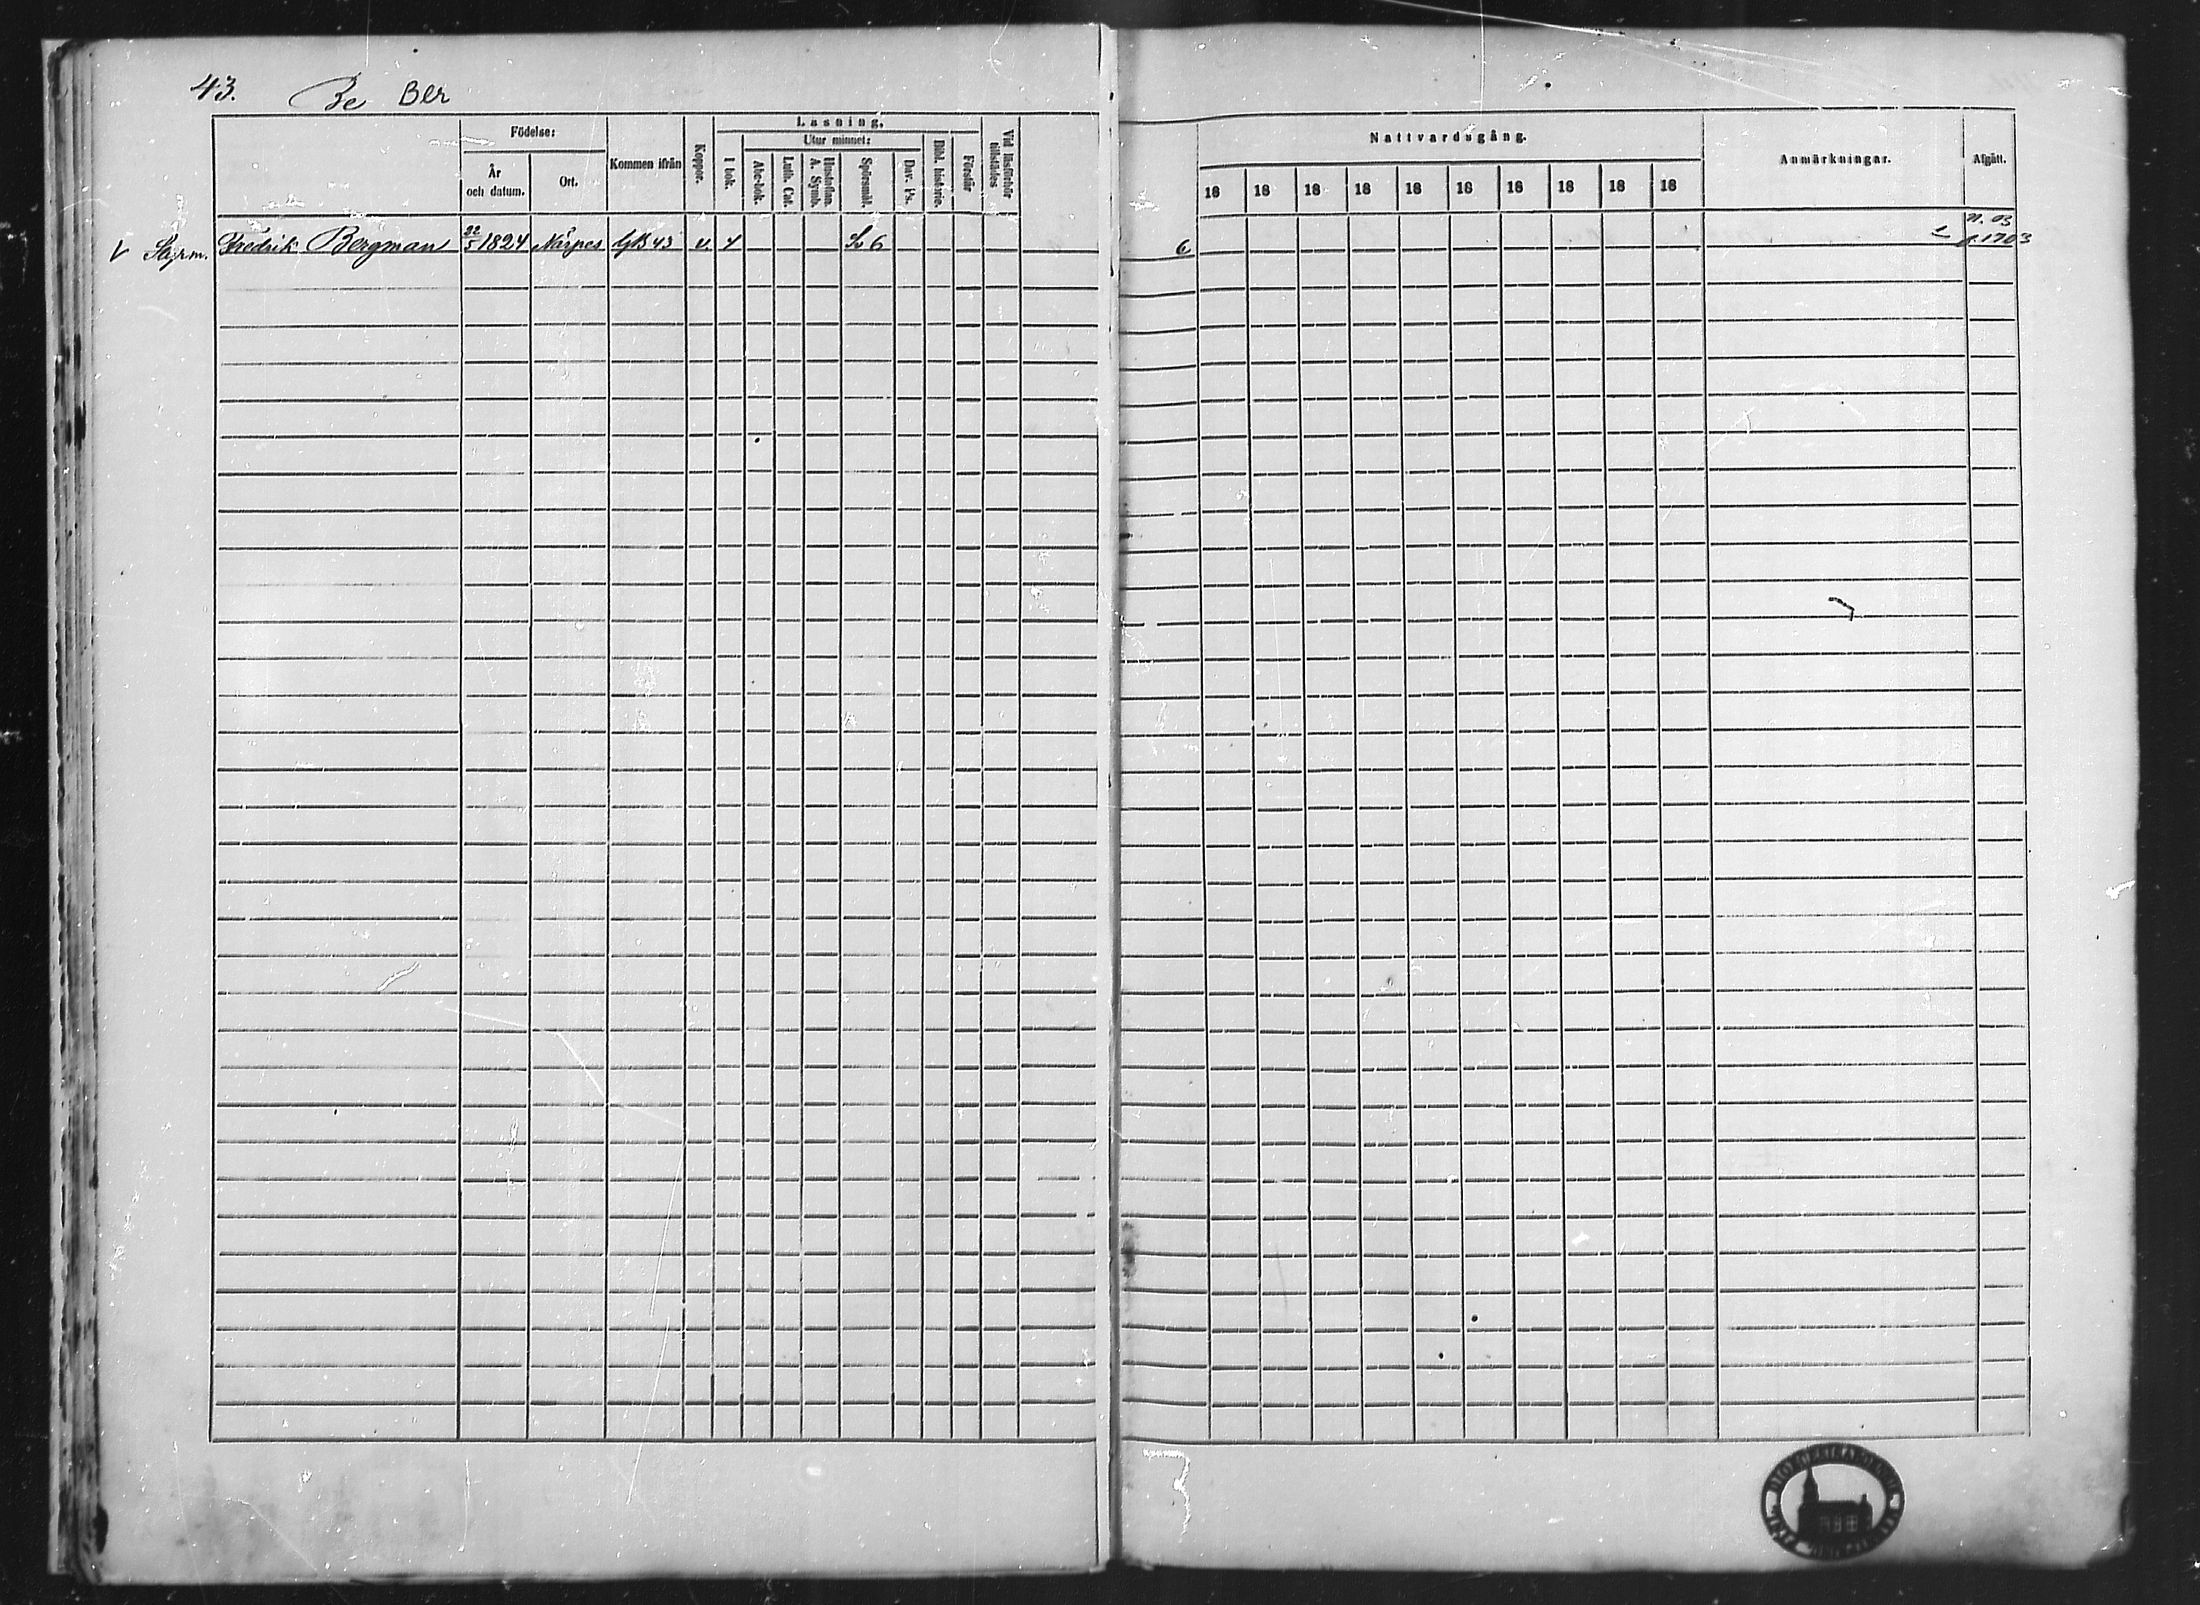 43. Be Ber
Födelse:
År och datum.
Ort.
Kommen ifrån
Koppor.
Läsning.
I bok.
Utur minnet:
Abc-bok.
Luth. Cat.
Hustaflan. A. Symb.
Spörsmål.
Dav. Ps.
Bibl. historie.
Förstår
Vid läsförhör tillstädes
Nattvardsgång.
18 18 18 18 18 18 18 18 18 18
Anmärkningar.
Afgått.
Fredrik Bergman 22/5 1824 Närpes GB 43 v. 4 6
6
n. 03
1703